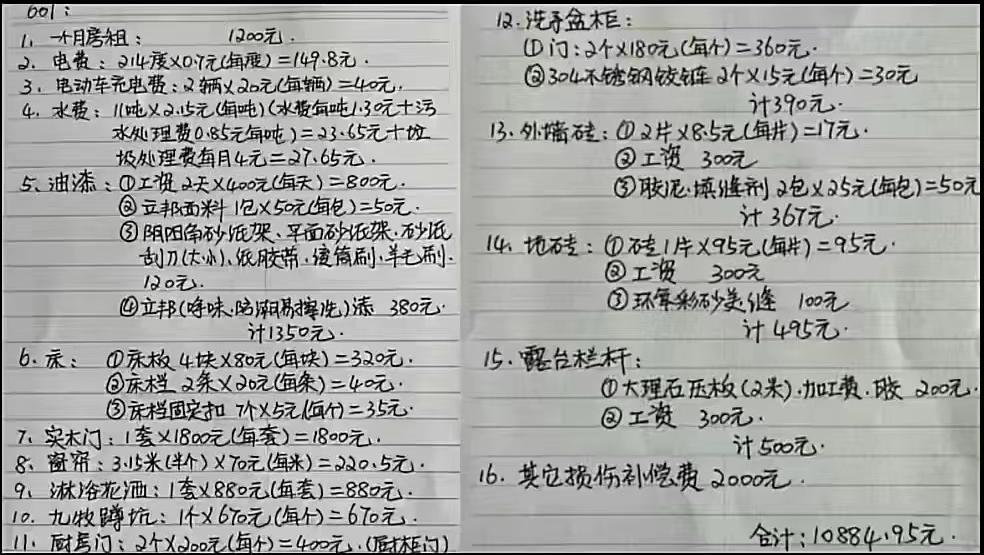 601:
1、一个月房租: 1200元.
2、电费: 214度×0.7元(每度)=149.8元.
3、电动车充电费: 2辆×20元(每辆)=40元.
4、水费: 11吨×2.15元(每吨)(水费每吨1.30元+污
水处理费0.85元每吨)=23.65元+垃
圾处理费每月4元=27.65元.
5、油漆: ①工资 2天×400元(每天)=800元.
②立邦面料 1包×50元(每包)=50元.
③阴阳角砂纸架、平面砂纸架、砂纸
刮刀(大小)、纸胶带、滚筒刷、羊毛刷.
120元.
④立邦(净味、防潮易擦洗)漆 380元.
计1350元.
6、床: ①床板 4块×80元(每块)=320元.
②床档 2条×20元(每条)=40元.
③床档固定扣 7个×5元(每个)=35元.
7、实木门: 1套×1800元(每套)=1800元.
8、窗帘: 3.15米(半个)×70元(每米)=220.5元.
9、淋浴花洒: 1套×880元(每套)=880元.
10、九牧蹲坑: 1个×670元(每个)=670元.
11、厨房门: 2个×200元(每个)=400元.(厨柜门)
12、洗手盆柜:
①门: 2个×180元(每个)=360元.
②304不锈钢铰链 2个×15元(每个)=30元
计390元.
13、外墙砖: ①2片×8.5元(每片)=17元.
②工资 300元
③胶泥、填缝剂 2包×25元(每包)=50元
计 367元.
14、地砖: ①砖1片×95元(每片)=95元.
②工资 300元
③环氧彩砂美缝 100元
计 495元.
15、露台栏杆:
①大理石压板(2米)、加工费、胶 200元.
②工资 300元.
计500元.
16、其它损伤补偿费 2000元.
合计: 10884.95元.